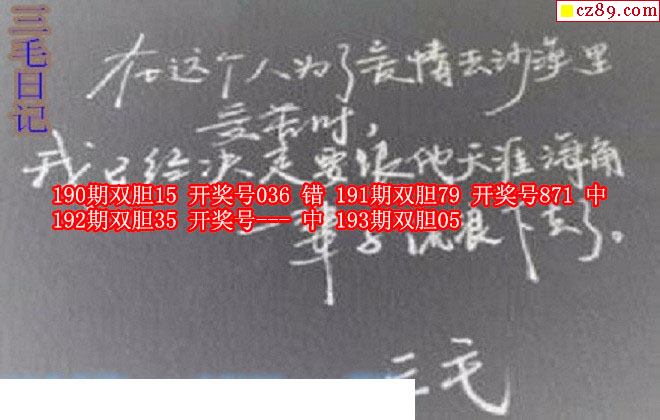 cz89.com
三毛日记
在这个人为了爱情去沙漠里
受苦时，
我已经决定要跟他天涯海角
190期双胆15 开奖号036 错 191期双胆79 开奖号871 中
192期双胆35 开奖号--- 中 193期双胆05
一辈子流浪下去了。
三毛